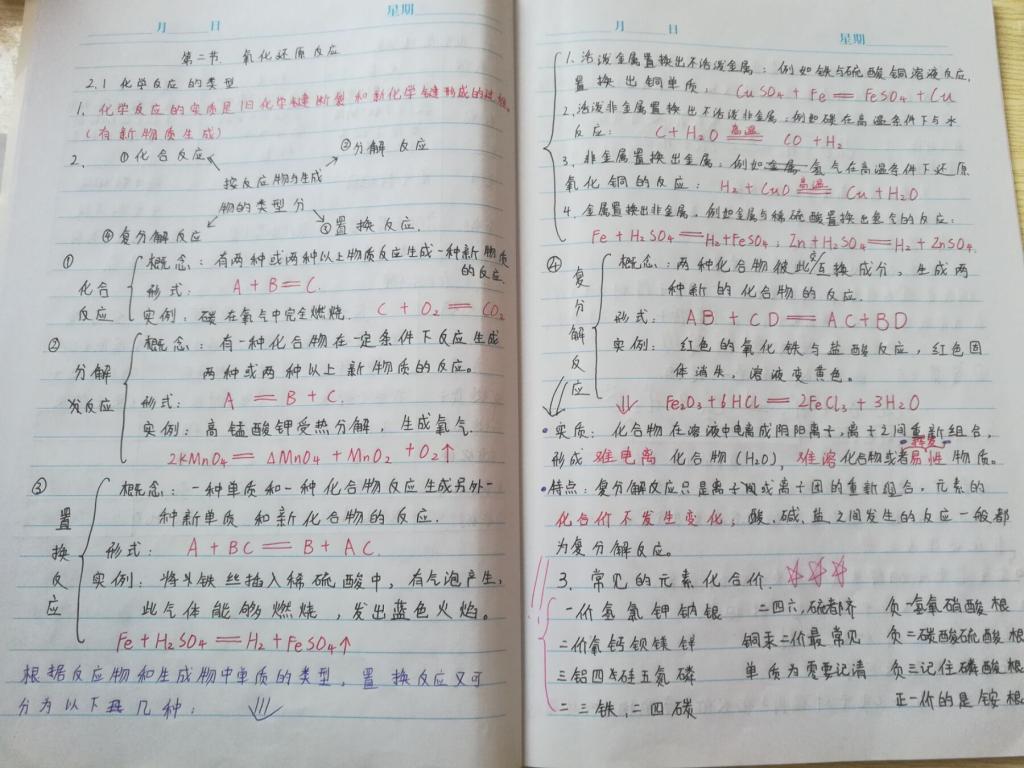 月 日 星期
第二节 氧化还原反应
2.1 化学反应的类型
1. 化学反应的实质是旧化学键断裂和新化学键形成的过程.
(有新物质生成)
2. ①化合反应 ②分解反应
按反应物与生成
物的类型分
④复分解反应 ③置换反应.
① 化合反应
概念：有两种或两种以上物质反应生成一种新物质
的反应.
形式： A + B = C.
实例：碳在氧气中完全燃烧. C + O₂ = CO₂
② 分解反应
概念：有一种化合物在一定条件下反应生成
两种或两种以上新物质的反应。
形式： A = B + C.
实例：高锰酸钾受热分解，生成氧气.
2KMnO₄ = ΔMnO₄ + MnO₂ + O₂↑
③ 置换反应
概念：一种单质和一种化合物反应生成另外一
种新单质和新化合物的反应.
形式： A + BC = B + AC.
实例：将铁丝插入稀硫酸中，有气泡产生，
此气体能够燃烧，发出蓝色火焰。
Fe + H₂SO₄ = H₂ + FeSO₄↑
根据反应物和生成物中单质的类型，置换反应又可
分为以下几种：
月 日 星期
1. 活泼金属置换出不活泼金属：例如铁与硫酸铜溶液反应，
置换出铜单质， CuSO₄ + Fe = FeSO₄ + Cu
2. 活泼非金属置换出不活泼非金属：例如碳在高温条件下与水
反应： C + H₂O 高温 CO + H₂
3. 非金属置换出金属：例如氢气在高温条件下还原
氧化铜的反应： H₂ + CuO 高温 Cu + H₂O
4. 金属置换出非金属，例如金属与稀硫酸置换出氢气的反应：
Fe + H₂SO₄ = H₂ + FeSO₄; Zn + H₂SO₄ = H₂ + ZnSO₄.
④ 复分解反应
概念：两种化合物彼此交互换成分，生成两
种新的化合物的反应.
形式： AB + CD = AC + BD
实例： 红色的氧化铁与盐酸反应，红色固
体消失，溶液变黄色。
Fe₂O₃ + 6HCl = 2FeCl₃ + 3H₂O
•实质：化合物在溶液中电离成阴阳离子，离子之间重新组合，
形成难电离化合物(H₂O)，难溶化合物或者易挥发性物质。
•特点：复分解反应只是离子间或离子团的重新组合，元素的
化合价不发生变化；酸、碱、盐之间发生的反应一般都
为复分解反应。
3. 常见的元素化合价
一价氢氯钾钠银 二四六，硫都齐 负一氢氧硝酸根
二价氧钙钡镁锌 铜汞二价最常见 负二碳酸硫酸根
三铝四硅五氮磷 单质为零要记清 负三记住磷酸根
二三铁，二四碳 正一价的是铵根